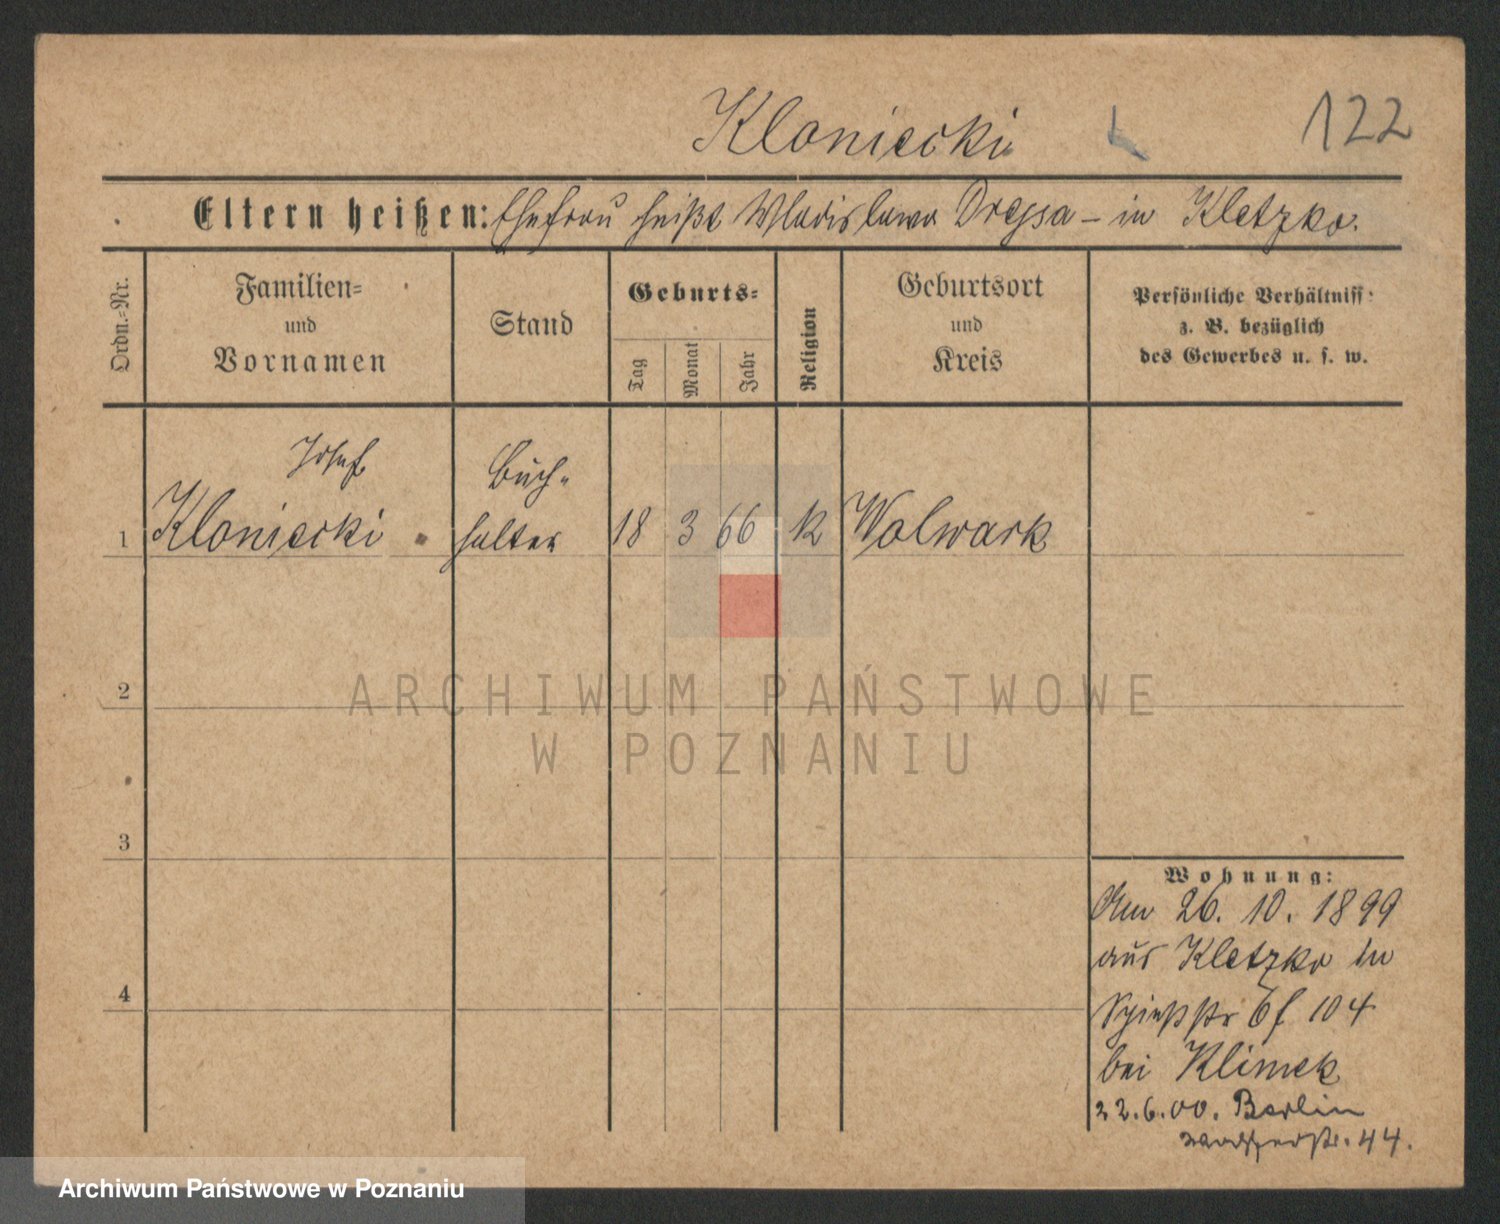 Kloniecki
122
Eltern heißen: Ehefrau heißt Wladislawa Drejsa – in Kletzko.
Ordn.=Nr.
Familien=
und
Vornamen
Stand
Geburts=
Tag
Monat
Jahr
Religion
Geburtsort
und
Kreis
Persönliche Verhältniss:
z. B. bezüglich
des Gewerbes u. s. w.
Josef
Buch-
1 Kloniecki halter 18 3 66 K Wolwark
2
3
4
Wohnung:
Am 26. 10. 1899
aus Kletzko in
104
bei Klimek
22.6.00. Berlin
44.
ARCHIWUM PAŃSTWOWE
W POZNANIU
Archiwum Państwowe w Poznaniu